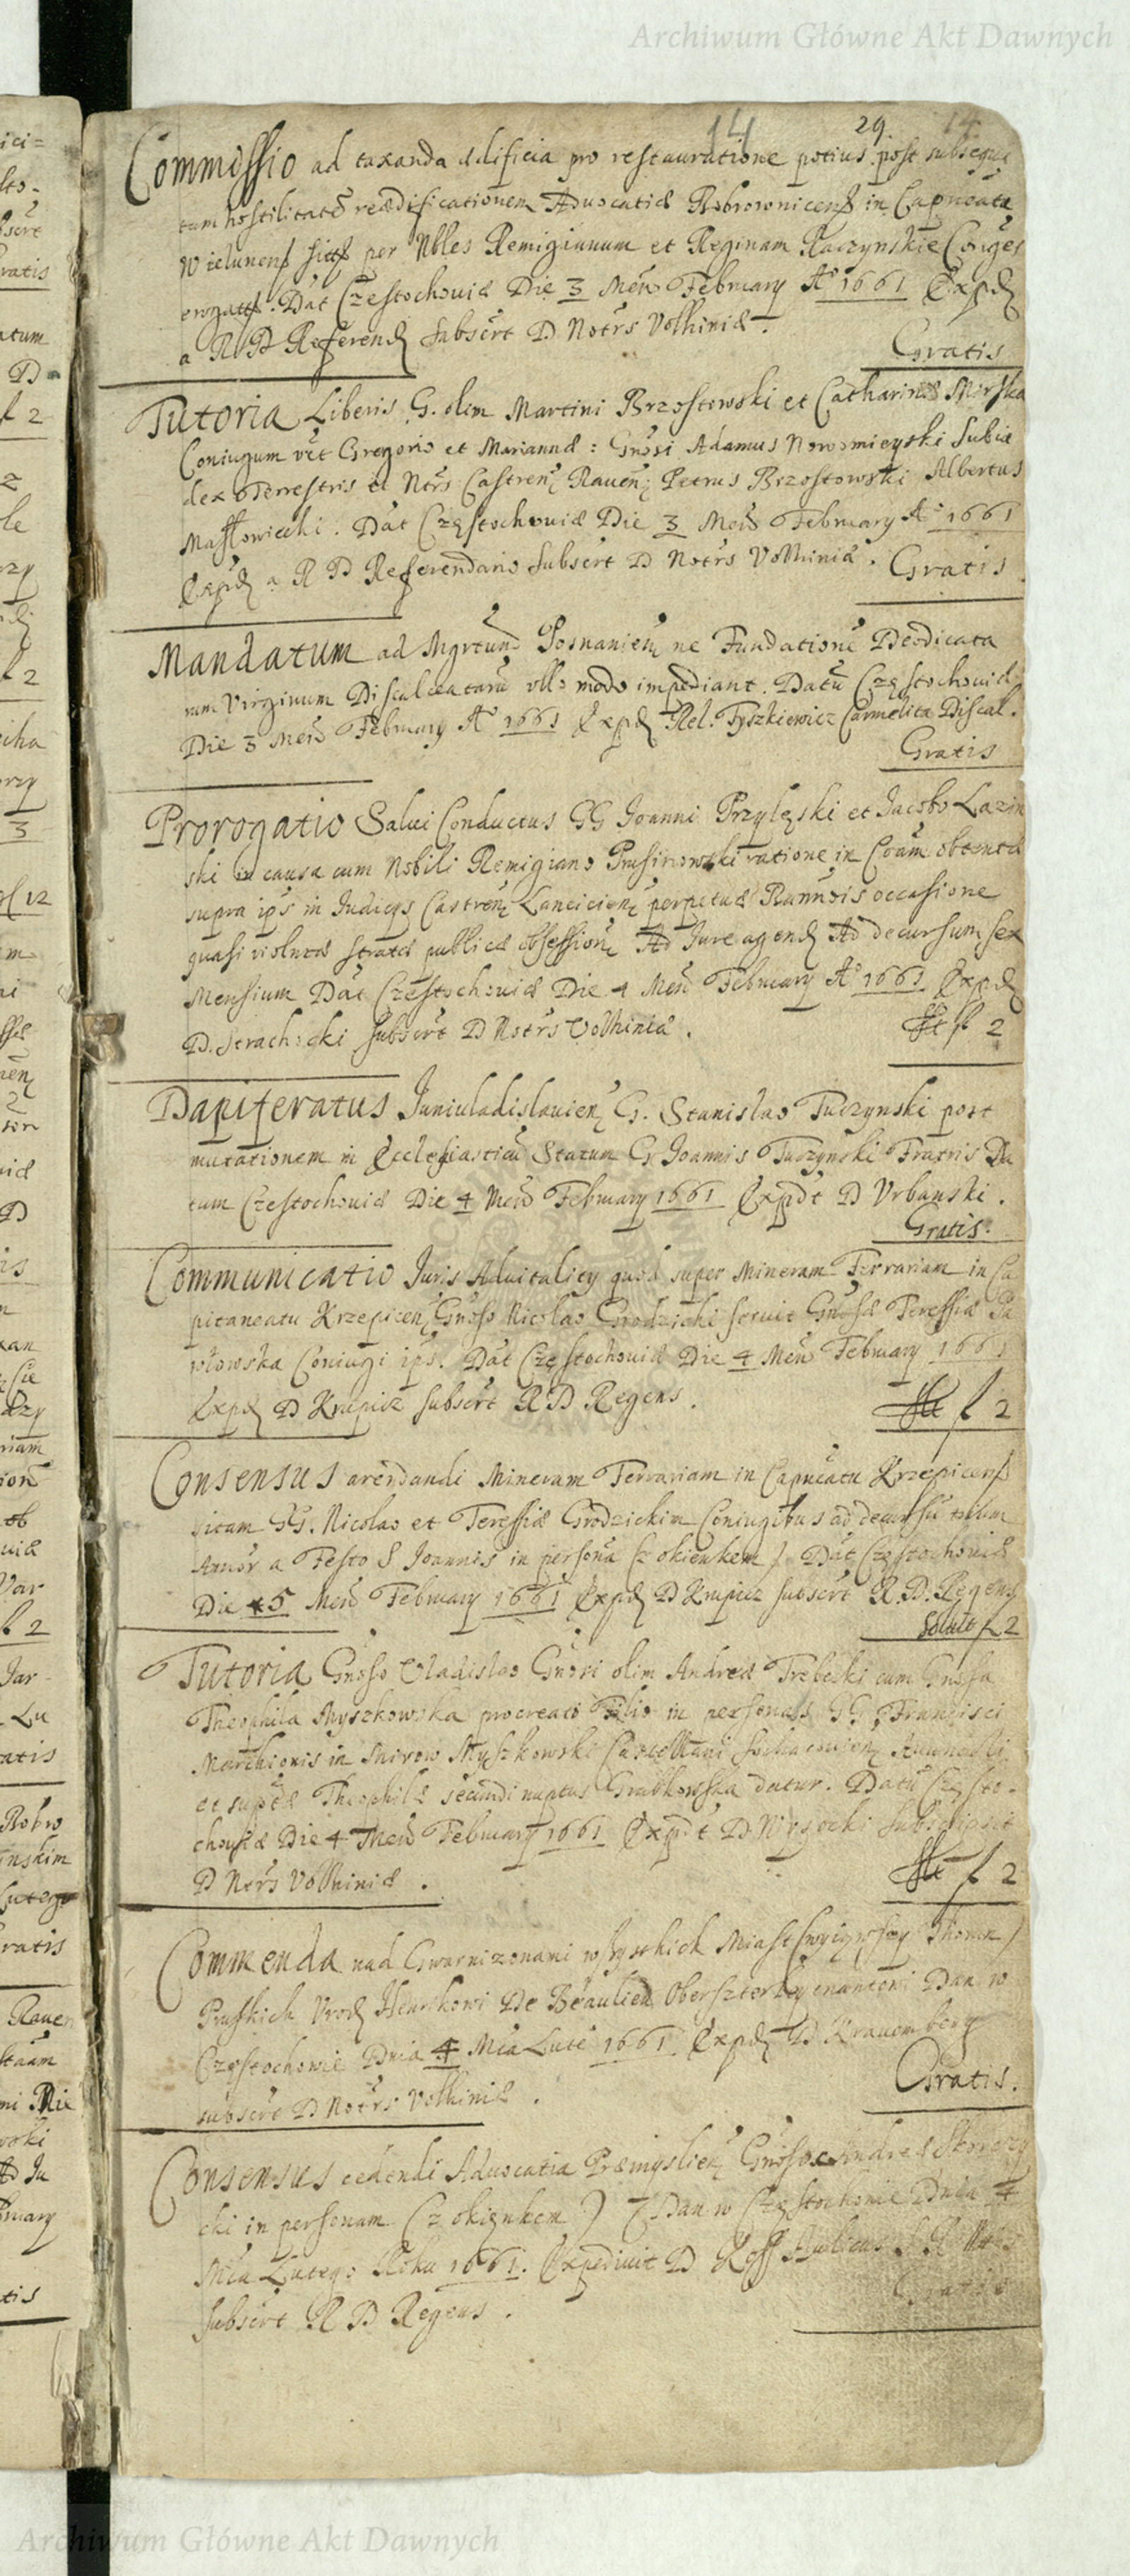 Archiwum Główne Akt Dawnych
14 29. 14
Commissio ad taxanda ædificia pro restauratione potius post subsequu
tam hostilitatē reædificationem Advocatiæ Bobrownicenß in Capneatu
Wielunenß sitß per Nbles Remigianum et Reginam Raczynskie Coniuges
erogatß. Dat Częstochoviæ Die 3 Mens February A° 1661 Expd
a R D Referend subscrt D Notrs Volhiniæ.
Gratis
Tutoria Liberis G. olim Martini Brzostowski et Catharinæ Morska
Coniugum vět Gregorio et Mariannæ: Gnosi Adamus Nowomieyski Subiu
dex Terrestris et Ntrs Castren Raven; Petrus Brzostowski Albertus
Masłowiecki. Dat Częstochoviæ Die 3 Mens February A° 1661
Expd a R D Referendario subscrt D Notrs Volhiniæ. Gratis
Mandatum ad Mgrtum Posnanien ne Fundationi Deodicata
rum Virginum Discalceataru ullo modo impediant. Datū Częstochoviæ
Die 3 Mens February A° 1661 Expd Rel. Tyszkiewicz Carmelita Discal.
Gratis
Prorogatio Salvi Conductus GG Joanni Przyłęski et Jacobo Lazin
ski in causa cum Nobili Remigiano Prusinowski ratione in Coūm obtentæ
supra ips in Judicys Castren Lancicien perpetuæ Bannois occasione
quasi violntæ stratæ publicæ obsession Ad Jure agend Ad decursum sex
Mensium Dat Częstochoviæ Die 4 Mens February A° 1661 Expd
D. Strachocki subscrt D Notrs Volhiniæ.
f 2
Dapiferatus Juniuladislavien G. Stanislao Tuczynski post
mutationem in Ecclesiasticū Statum G Joannis Tuczynski Fratris Da
tum Częstochoviæ Die 4 Mens February 1661 Expdt D Urbanski.
Gratis.
Communicatio Juris Advitalicy quod super Mineram Ferrariam in Ca
pitaneatu Krzepicen Gnoso Nicolao Grodzicki servit Gnosæ Teressiæ Pa
włowska Coniugi ips. Dat Częstochoviæ Die 4 Mens February 1661
Expd D Krupicz subscrt R D Regens.
f 2
Consensus arendandi Mineram Ferrariam in Capneatu Krzepicenß
sitam GG. Nicolao et Teressiæ Grodzickim Coniugibus ad decursū trium
Annor a Festo S Joannis in persona (z okienkem) Dat Częstochoviæ
Die 5 Mens February 1661 Expd D Krupicz subscrt R. D. Regens
Solvit f 2
Tutoria Gnoso Vladislao Gnosi olim Andreæ Trebecki cum Gnosa
Theophila Myszkowska procreato Filio in personas GG Francisci
Marchionis in Mirow Myszkowski Castellani
et suptæ Theophilæ secundi nuptus Grabkowska datur. Datū Często-
choviæ Die 4 Mens February 1661 Expdt D Wysocki subscripsit
D Ntrs Volhiniæ.
f 2
Commenda nad Gwarnizonami wszystkich Miast (wyiąwszy Thorun)
Pruskich Urod Henrikowi De Beaulieu Obersterleytenantowi Dan w
Częstochowie Dnia 4 Mca Lute 1661. Expd D Krauemberg
subscrt D Notrs Volhiniæ.
Gratis.
Consensus cedendi Advocatia Præmyslien Gnoso Andreæ
cki in personam (z okięnkem) Dan w Częstochowie Dnia 4
Mca Lutego Roku 1661. Expedivit D
subscrt R D Regens.
Gratis
Archiwum Główne Akt Dawnych